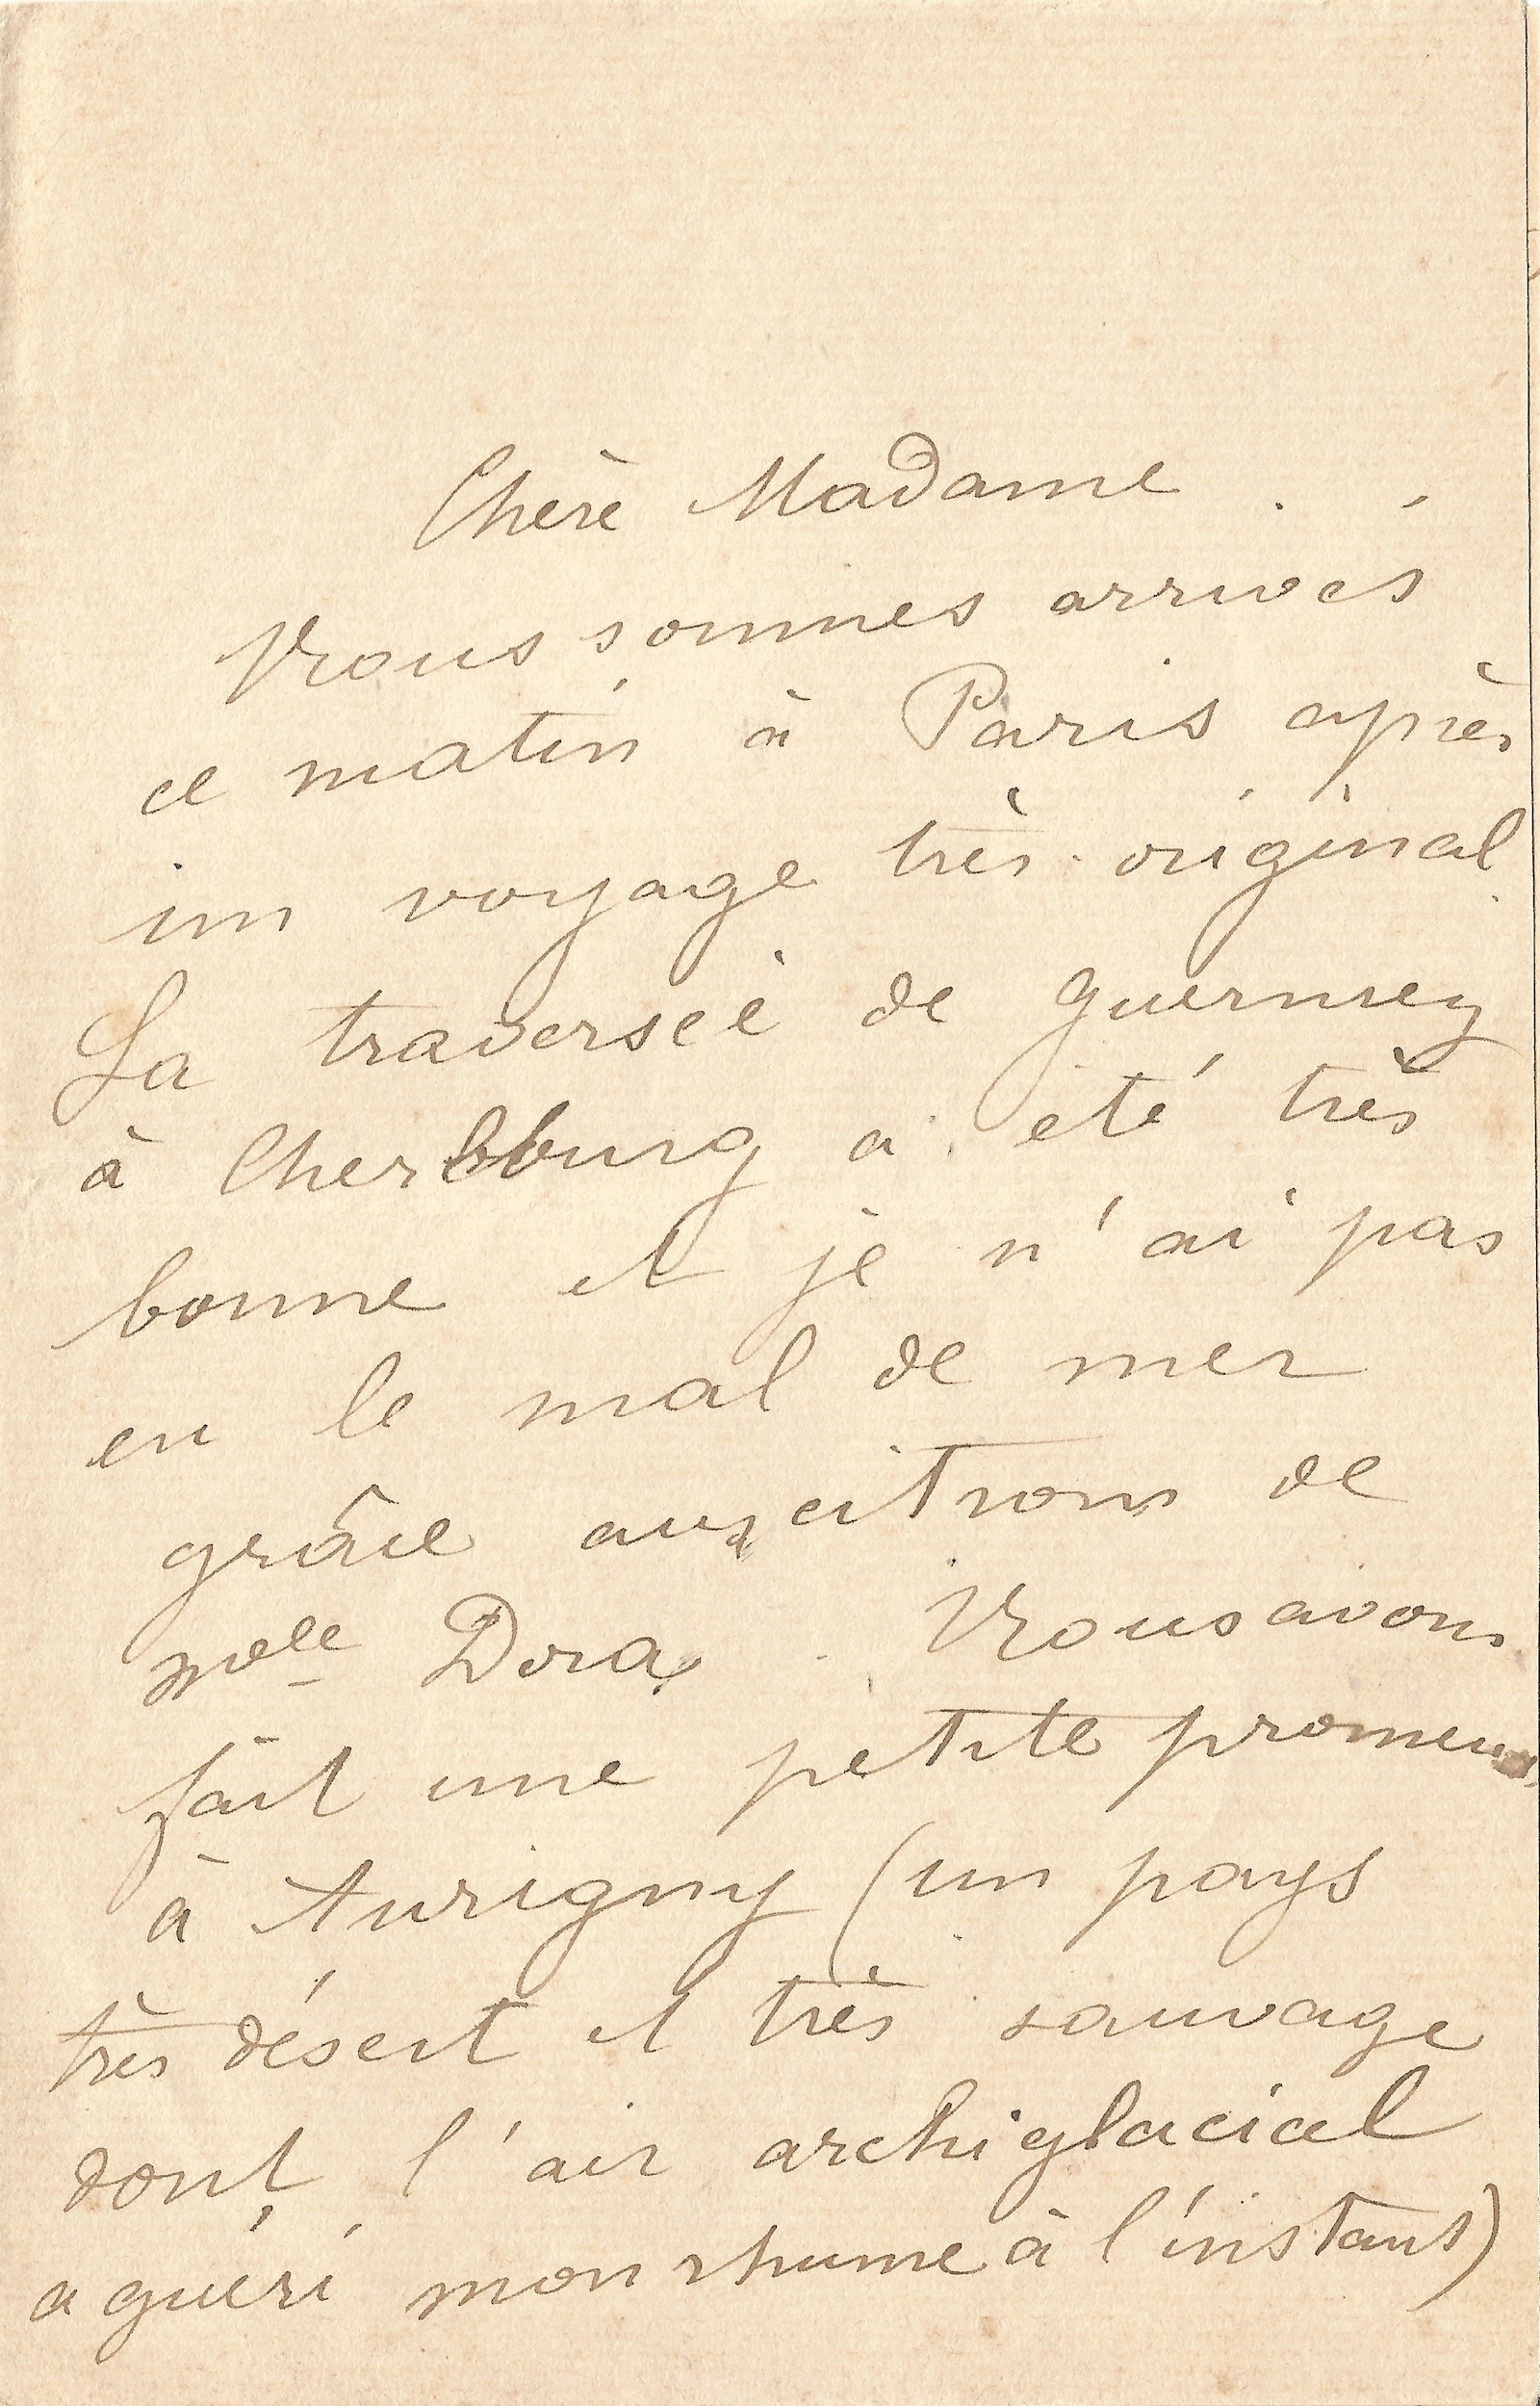 Chère Madame
Nous sommes arrivés
ce matin à Paris après
un voyage très original
La traversée de Guernsey
à Cherbourg a été très
bonne et je n'ai pas
eu le mal de mer
grâce aux citrons de
Mlle Dora. Nous avons
fait une petite
à Aurigny (un pays
très désert et très sauvage
dont l'air archiglacial
a guéri mon rhume à l'instant)